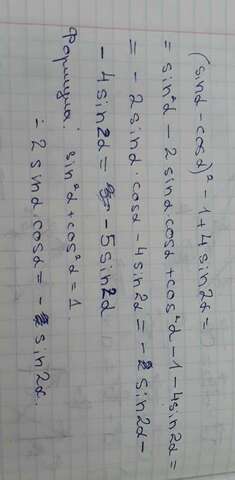 (sinα - cosα)² - 1 + 4 sin2α =
= sin²α - 2 sinα cosα + cos²α - 1 - 4sin2α =
= - 2 sinα · cosα - 4 sin2α = - sin2α -
- 4 sin2α = - 5 sin2α
Формула: sin²α + cos²α = 1.
2 sinα · cosα = - sin2α.